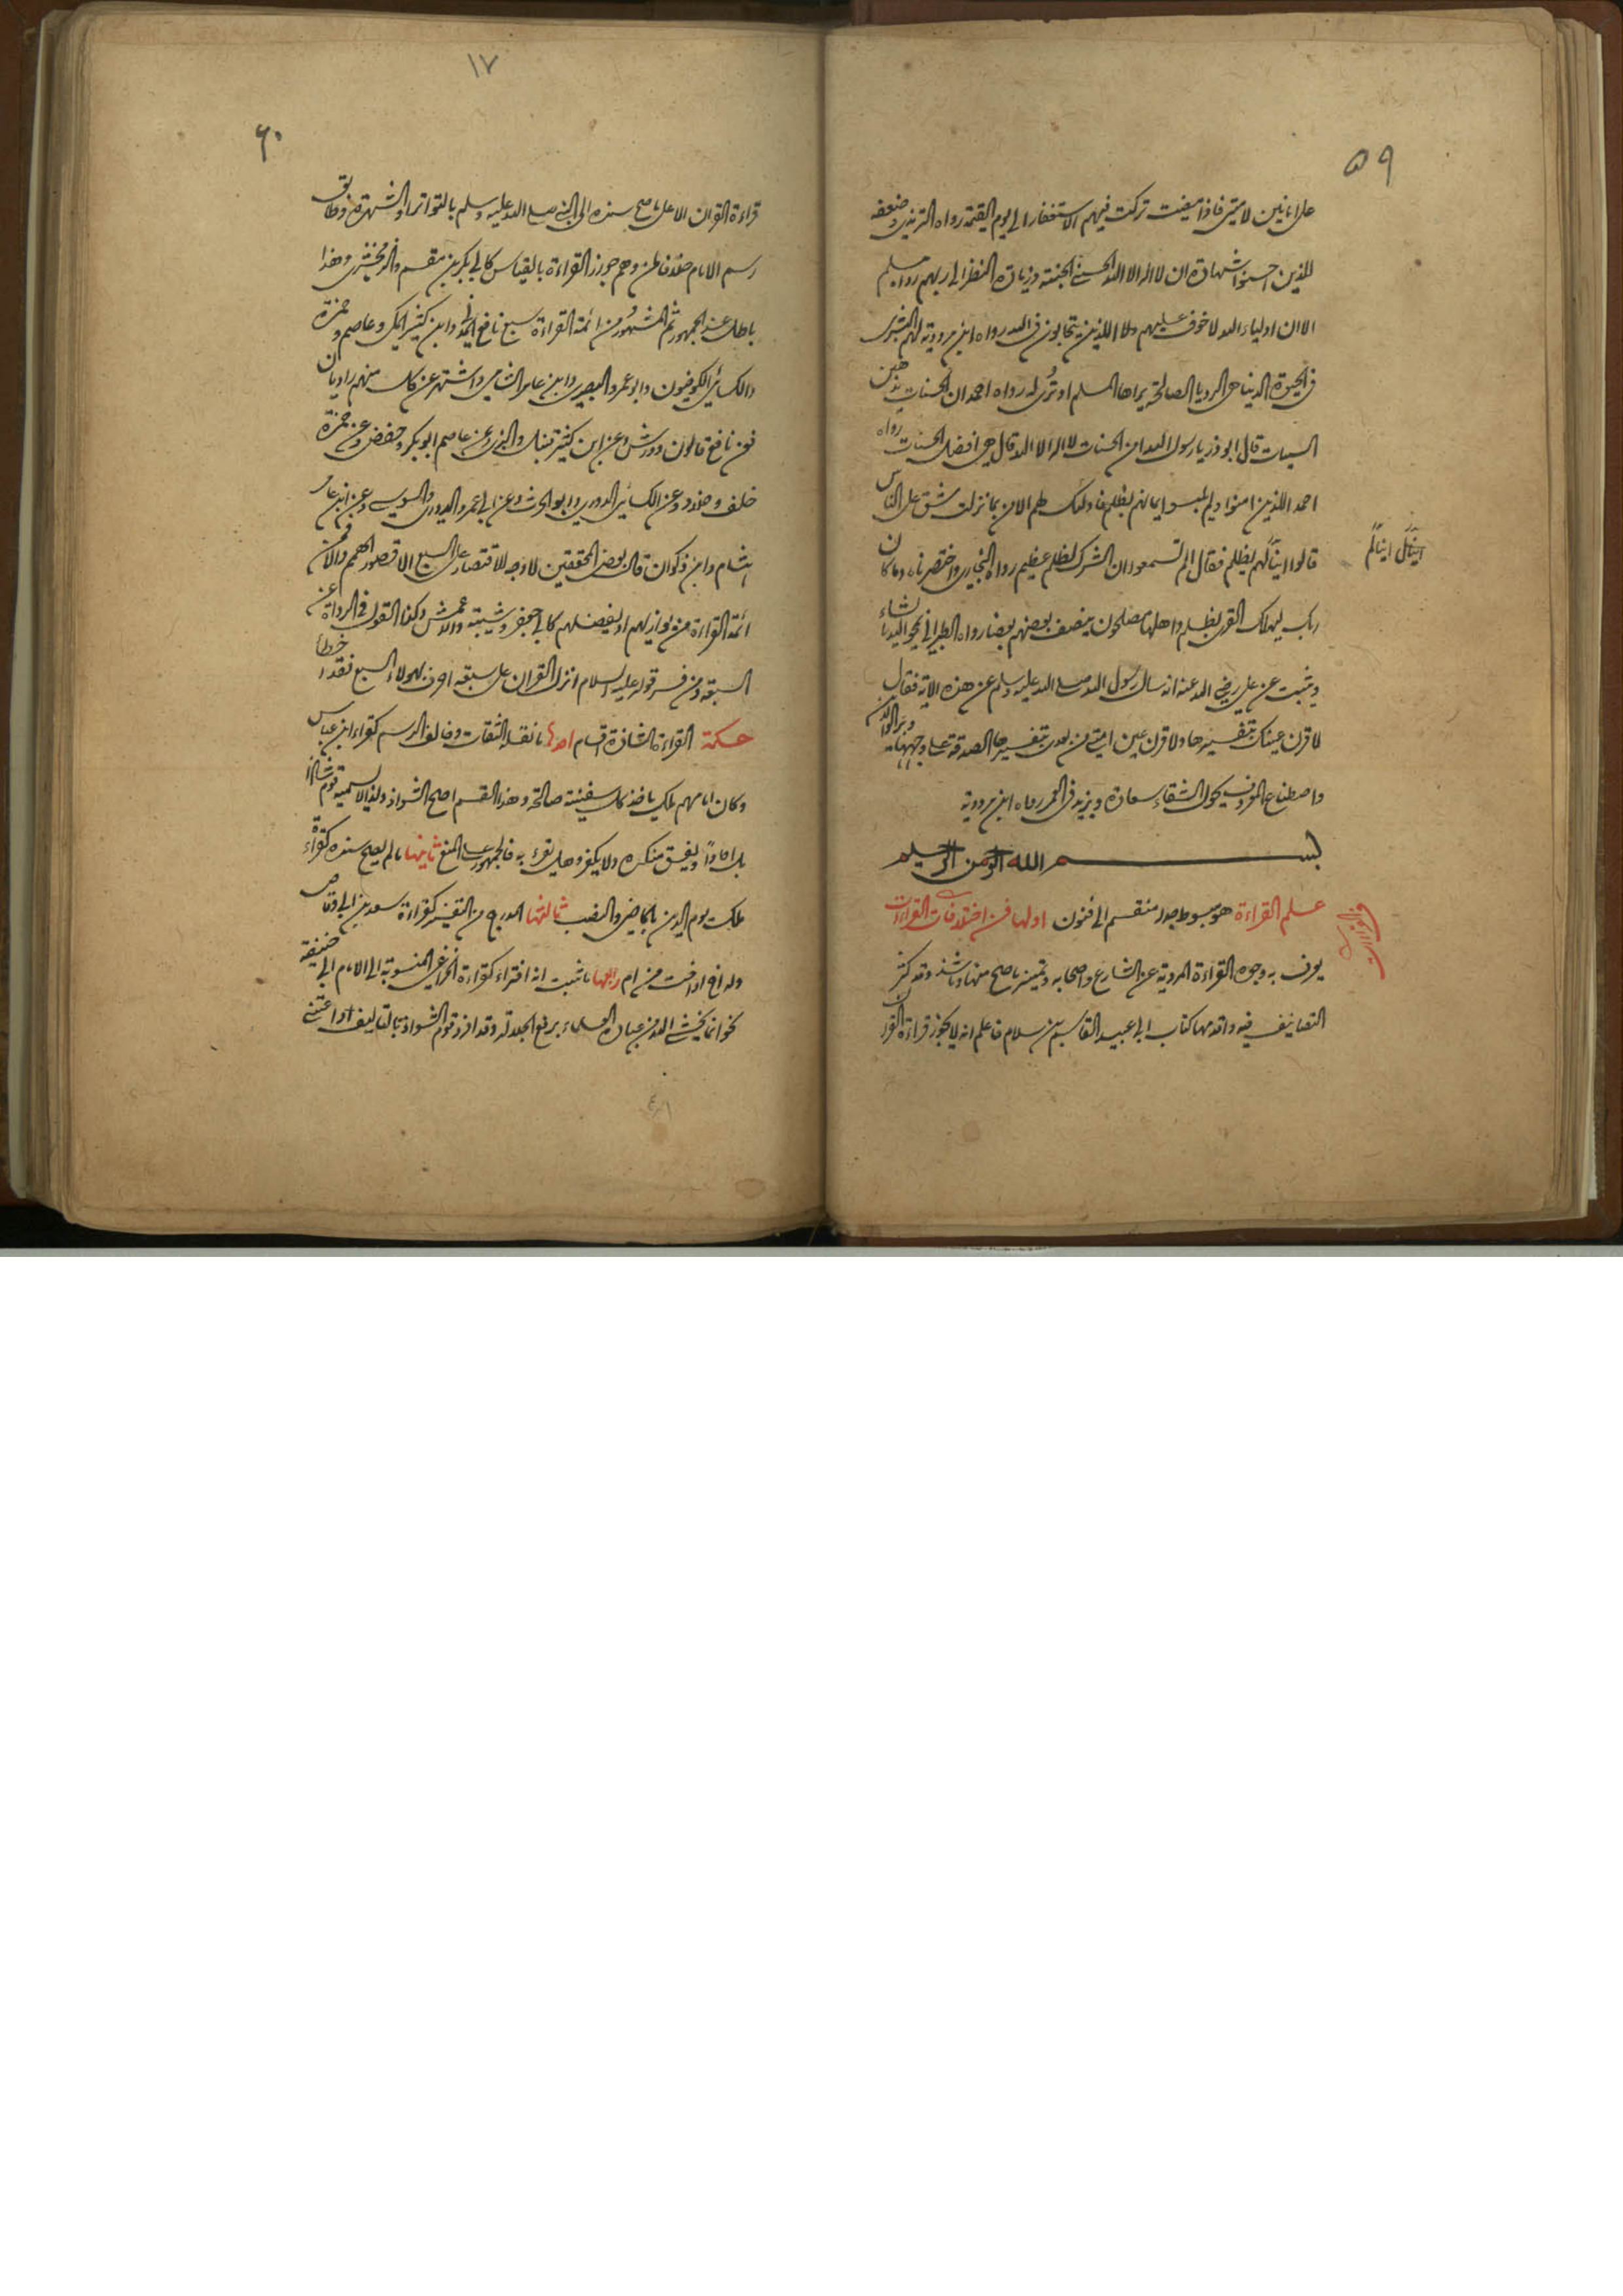 ٥٩
على امانين لامتى فاذا مضيت تركت فيهم الاستغفار الى يوم القيمة رواه الترمذي وضعفه
للذين احسنوا شهادة ان لا اله الا الله الحسنى الجنة وزيادة النظر الى ربهم رواه مسلم
الا ان اولياء الله لا خوف عليهم ولا الذين يتحابون في الله رواه ابن مردوية لهم البشرى
في الحيوة الدنيا هى الرويا الصالحة يراها المسلم او ترى له رواه احمد ان الحسنات يذهبن
السيات قال ابو ذر يا رسول الله امن الحسنات لا اله الا الله قال هي افضل الحسنات رواه
احمد الذين امنوا ولم يلبسوا ايمانهم بظلم فاولئك لهم الامن بما نزلت شق على الناس
قالوا اينا لم يظلم فقال الم تسمعوا ان الشرك لظلم عظيم رواه البخاري واختصرناه وما كان
ربك ليهلك القرى بظلم واهلها مصلحون ينصف بعضهم بعضا رواه الطبراني يمحو الله ما يشاء
ويثبت عن علي رضي الله عنه انه سال رسول الله صلى الله عليه وسلم عن هذه الاية فقال
لاقرن عينك بتفسيرها ولاقرن عين امتي من بعدى بتفسيرها الصدقة على وجهها وبر الوالدين
واصطناع المعروف يحول الشقاء سعادة ويزيد في العمر رواه ابن مردوية
بسم الله الرحمن الرحيم
علم القراءة هو مبسوط جدا منقسم الى فنون اولها فن اختلافات القراءات
يعرف به وجوه القراءة المروية عن الشارع واصحابه وتميز ما صح منها وما شذ وقد كثر
التصانيف فيه واقدمها كتاب ابي عبيد القاسم بن سلام فاعلم انه لا يجوز قراءة القران
١٧
٦٠
قراءة القران الا على ما صح سنده الى النبي صلى الله عليه وسلم بالتواتر او الشهرة وطابق
رسم الامام خلافا لمن وهم جوز القراءة بالقياس كابي بكر بن مقسم والزمخشرى وهذا
باطل عند الجمهور ثم المشهور من ائمة القراءة سبع نافع المدني وابن كثير المكى وعاصم وحمزة
والكسائي الكوفيون وابو عمرو البصري وابن عامر الشامي واشتهر عن كل منهم راويان
فعن نافع قالون وورش وعن ابن كثير قنبل والبزي وعن عاصم ابو بكر وحفص وعن حمزة
خلف وخلاد وعن الكسائي الدوري وابو الحرث وعن ابي عمرو الدوري والسوسي وعن ابن عامر
هشام وابن ذكوان قال بعض المحققين لا وجه للاقتصار على السبع الا قصور الهمم والا فمن
ائمة القراءة من يوازيهم او يفضلهم كابي جعفر وشيبة والاعمش وكذا القول في الرواة عن
السبعة ومن فسر قوله عليه السلام انزل القران على سبعة احرف بهولاء السبع فقد اخطأ
حكمة القراءة الشاذة اقسام احدها ما نقله الثقات وخالف الرسم كقراءة ابن عباس
وكان امامهم ملك ياخذ كل سفينة صالحة وهذا القسم اصح الشواذ ولذا لا يسميه قوم شاذا
بل احادا ويفسق منكره ولا يكفر وهل يقرء به فالجمهور على المنع ثانيها ما لم يصح سنده كقراءة
ملك يوم الدين بالماضي والنصب ثالثها المدرج من التفسير كقراءة سعد بن ابي وقاص
وله اخ او اخت من ام رابعها ما ثبت انه افتراء كقراءة الخزاعي المنسوبة الى الامام ابي حنيفة
نحو انما يخشى الله من عباده العلماء برفع الجلالة وقد افرد قوم الشواذ بالتاليف